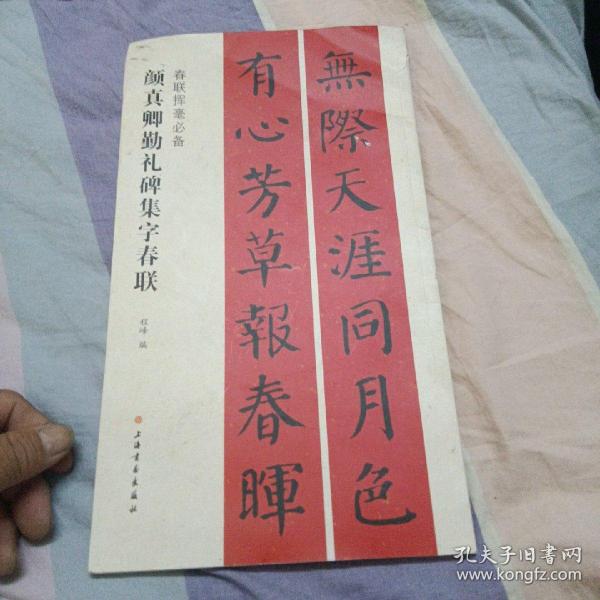 無際天涯同月色
有心芳草報春暉
春联挥毫必备
颜真卿勤礼碑集字春联
程峰 编
上海书画出版社
孔夫子旧书网
www.kongfz.com